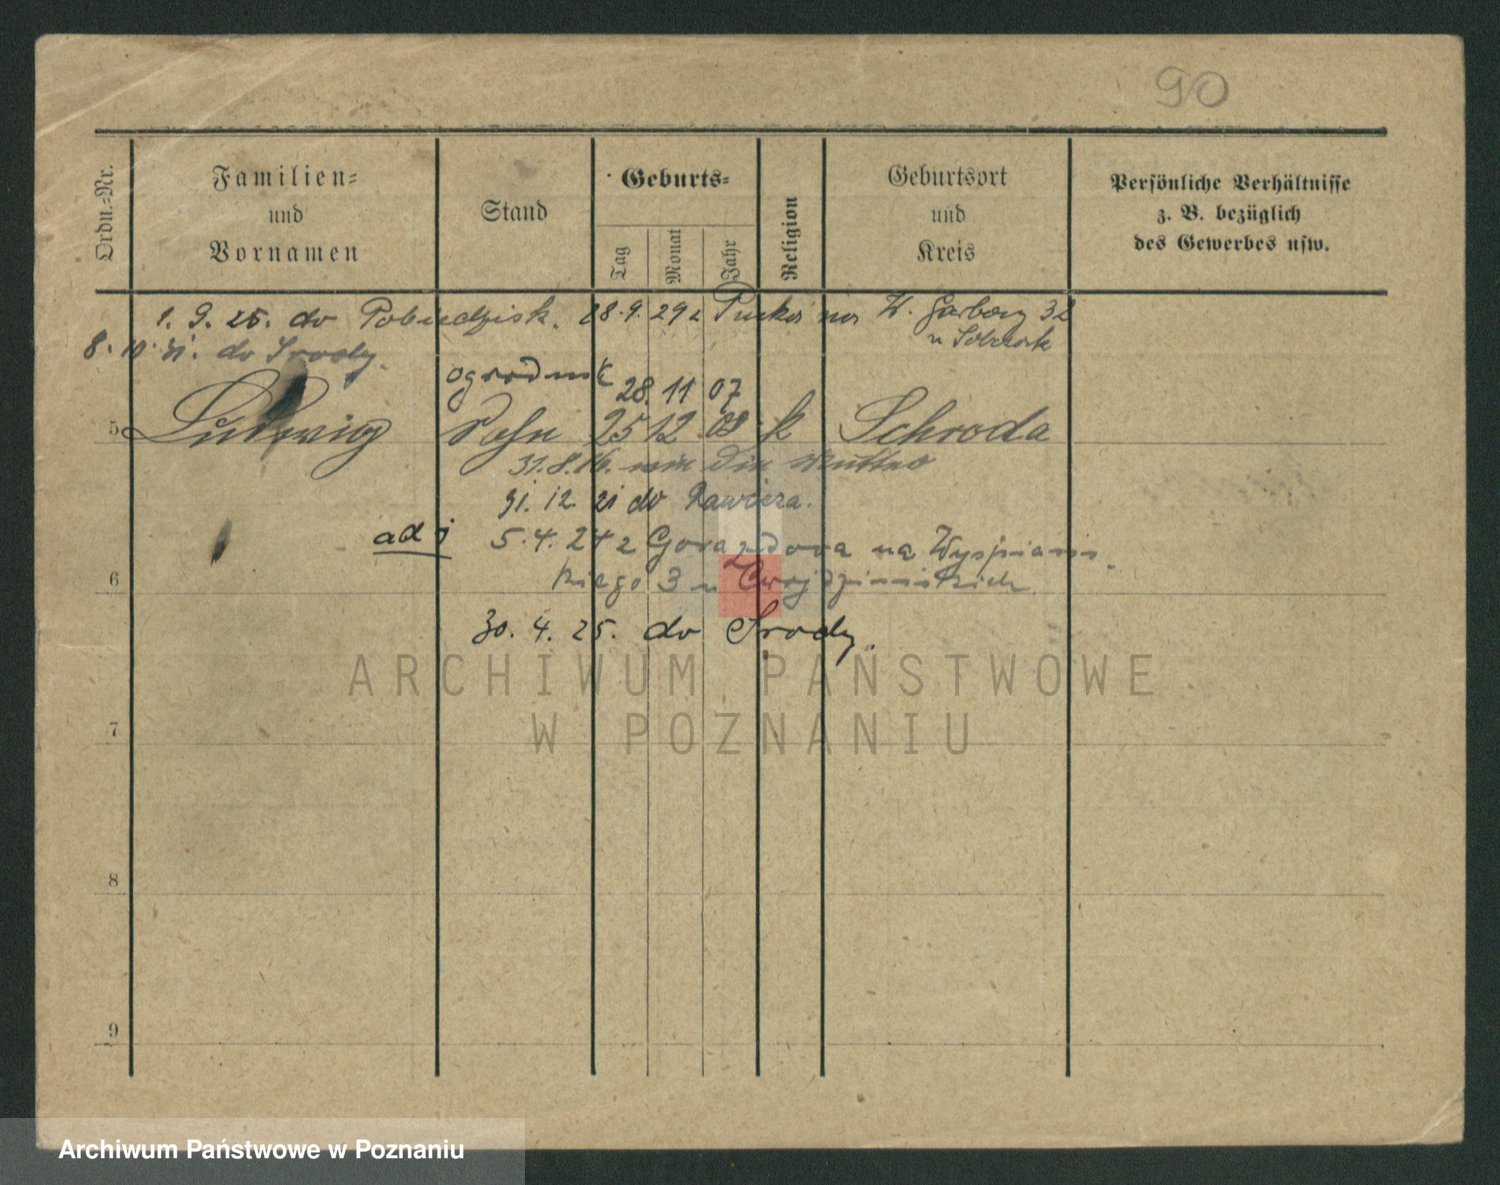 90
Ordn.-Nr.
Familien-
und
Vornamen
Stand
Geburts-
Tag
Monat
Jahr
Religion
Geburtsort
und
Kreis
Persönliche Verhältnisse
z. B. bezüglich
des Gewerbes usw.
1. 9. 25. do Pobiedzisk. 28. 9. 29 z W. Garbary 32
8. 10. 31. do Środy.
ogrodnik 28. 11 07
5 Ludwig Sohn 25 12 08 k Schroda
31. 8. 16. Mutter
31. 12. 21 do Rawicza.
adj 5. 4. 24 z Gorazdowa na Wyspiańs-
6 kiego 3 u
30. 4. 25. do Środy.
ARCHIWUM PAŃSTWOWE
W POZNANIU
7
8
9
Archiwum Państwowe w Poznaniu